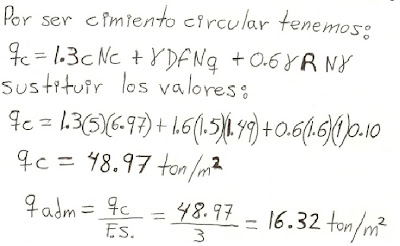 Por ser cimiento circular tenemos:
qc = 1.3cNc + γDfNq + 0.6γRNγ
sustituir los valores:
qc = 1.3(5)(6.97) + 1.6(1.5)1.49) + 0.6(1.6)(1)0.10
qc = 48.97 ton/m²
qadm = qc/F.S. = 48.97/3 = 16.32 ton/m²